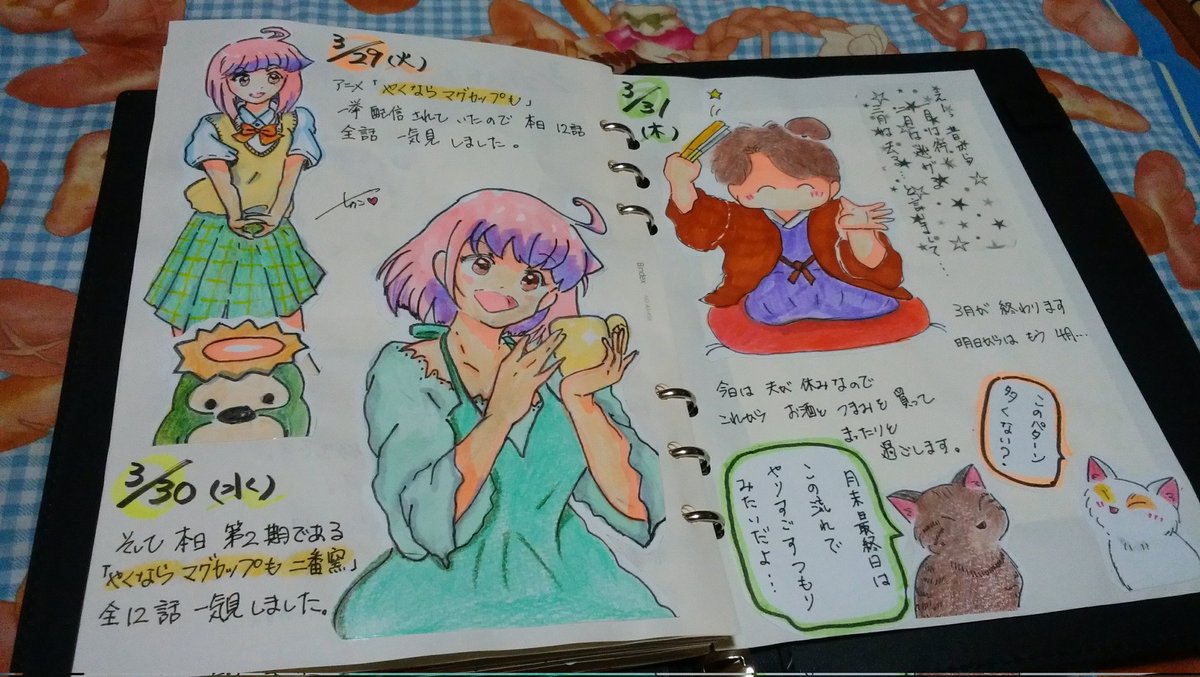 3/29(火)
アニメ「やくならマグカップも」
一挙配信されていたので 本日12話
全話 一気見しました。
3/30(水)
そして 本日 第2期である
「やくならマグカップも 二番窯」
全12話 一気見しました。
3/31
(木)
3月が終わります
明日からは もう 4月…
今日は 夫が 休みなので
これから お酒と つまみを 買って
まったりと
過ごします。
このパターン
多くない?
月末日最終日は
この流れで
やりすごすつもり
みたいだよ…